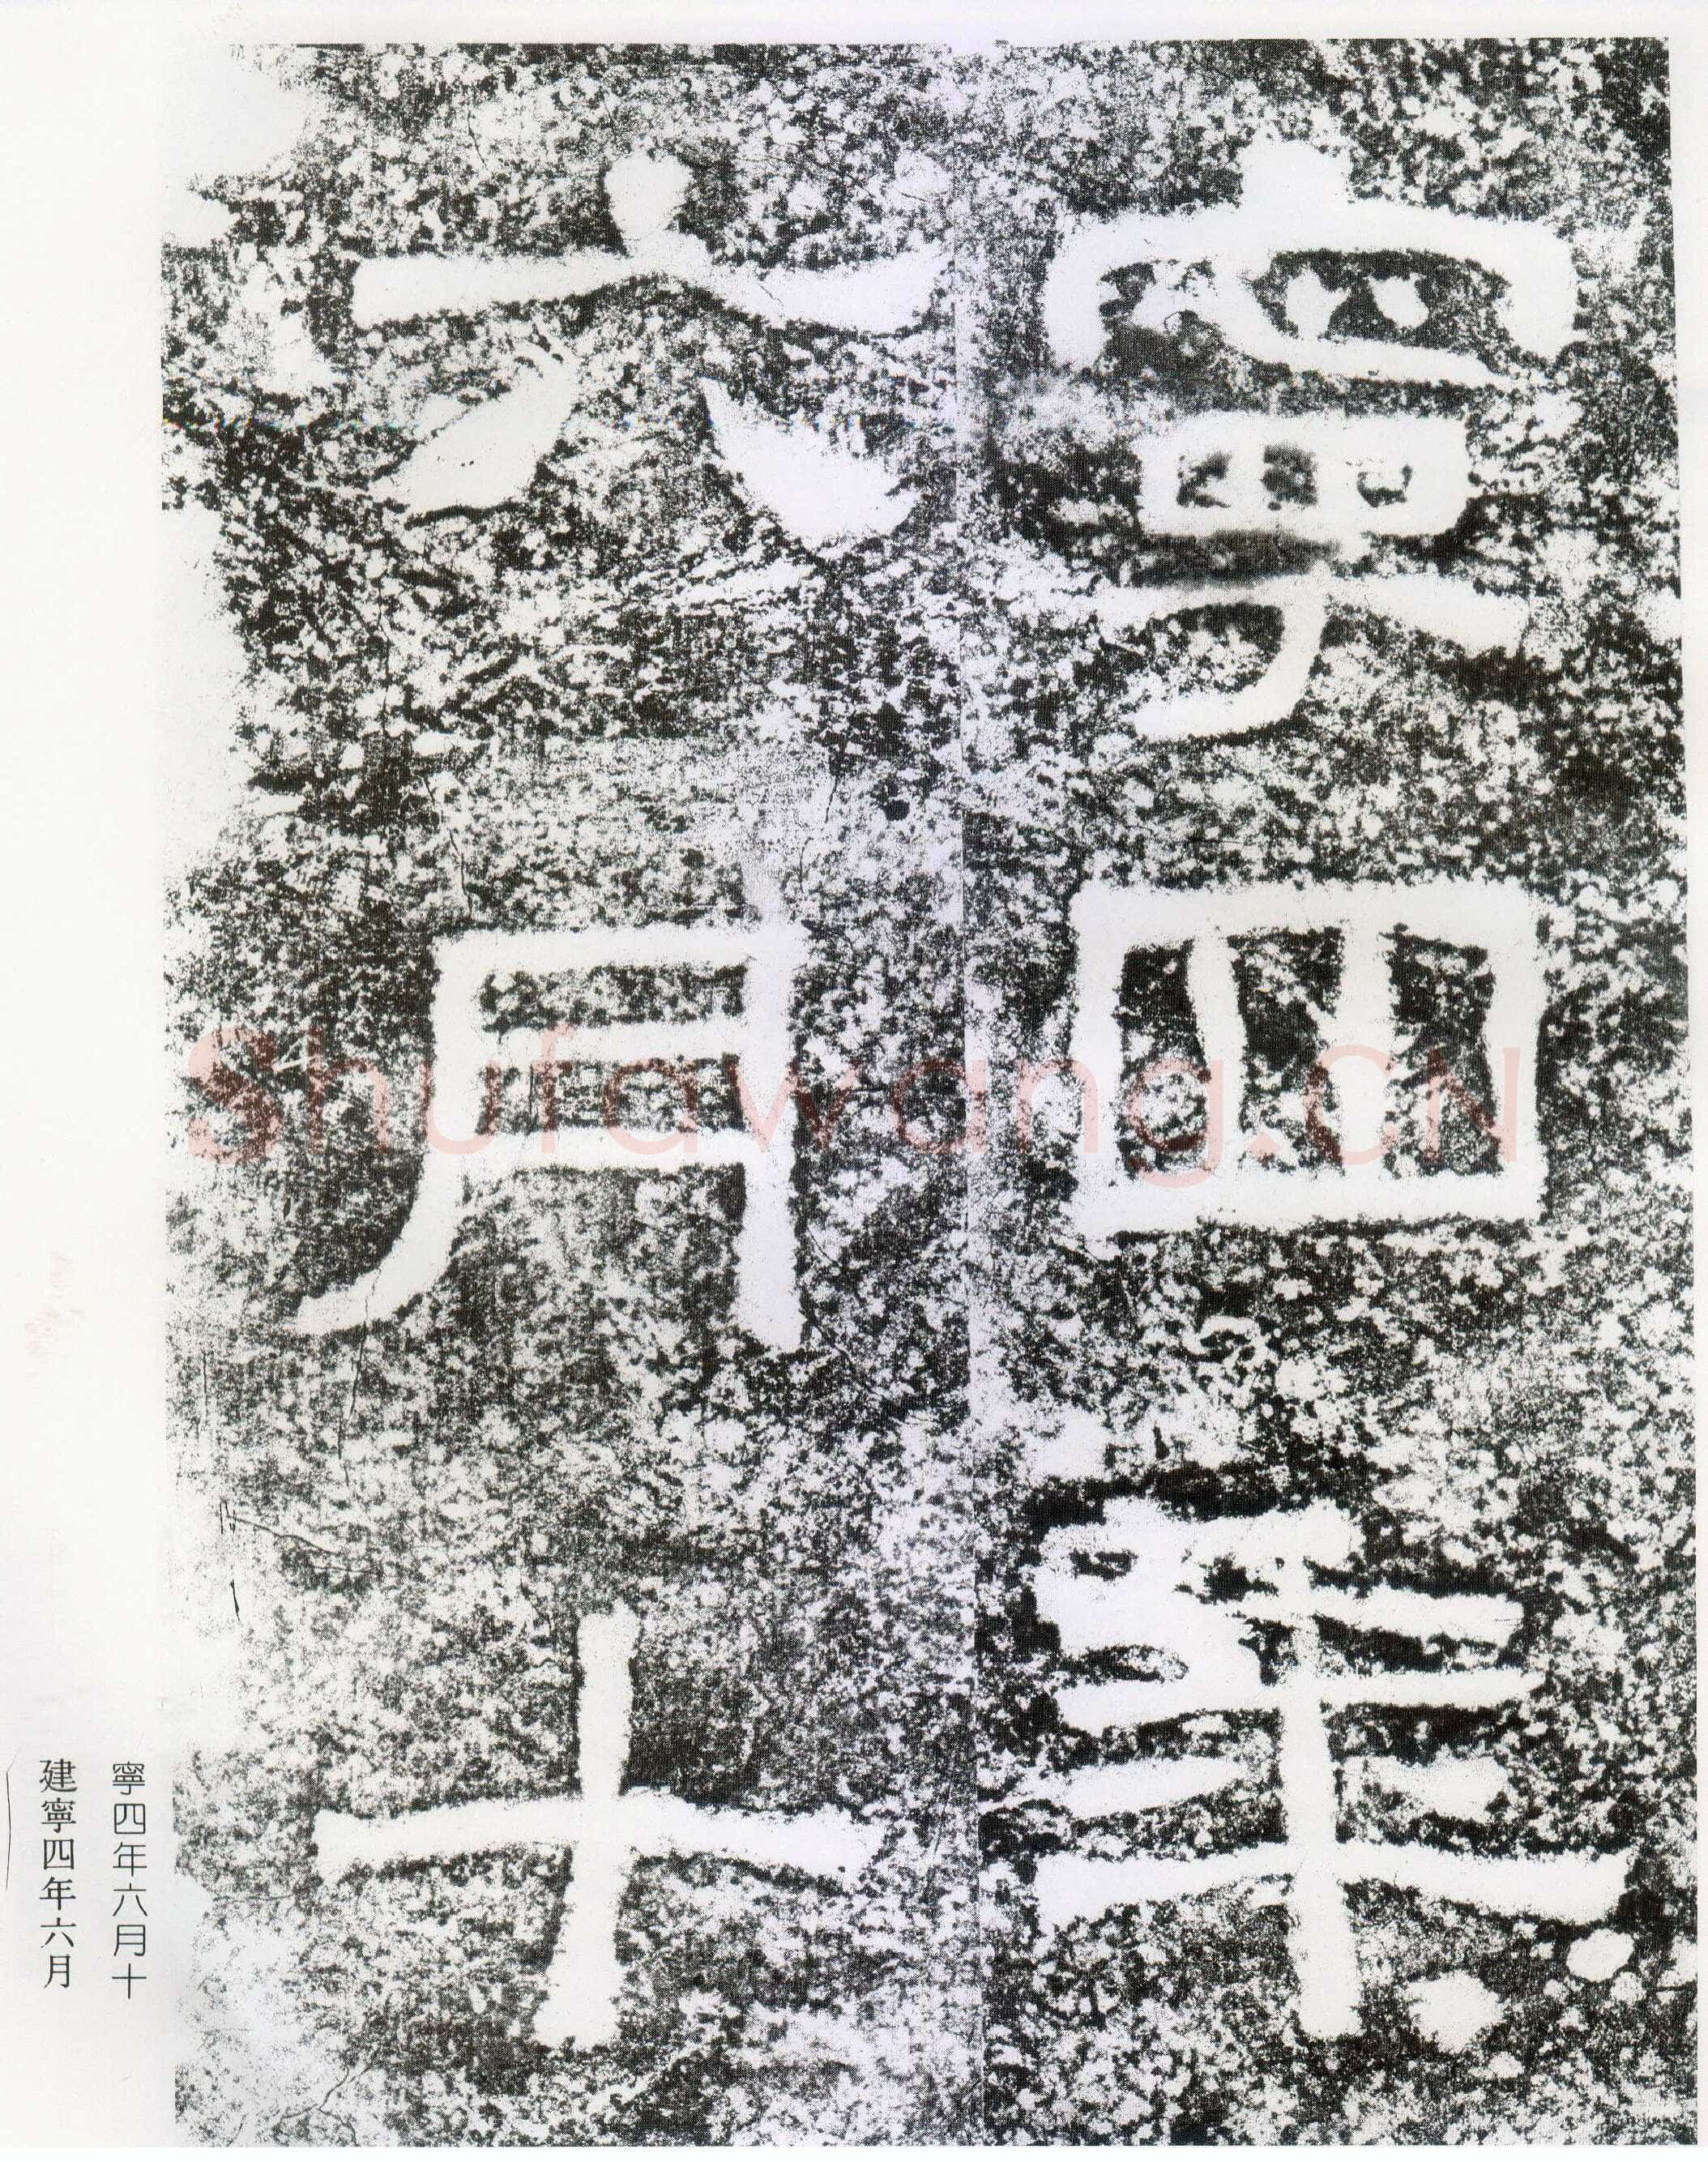 寧四年
六月十
寧四年六月十
建寧四年六月
Shufawang.CN